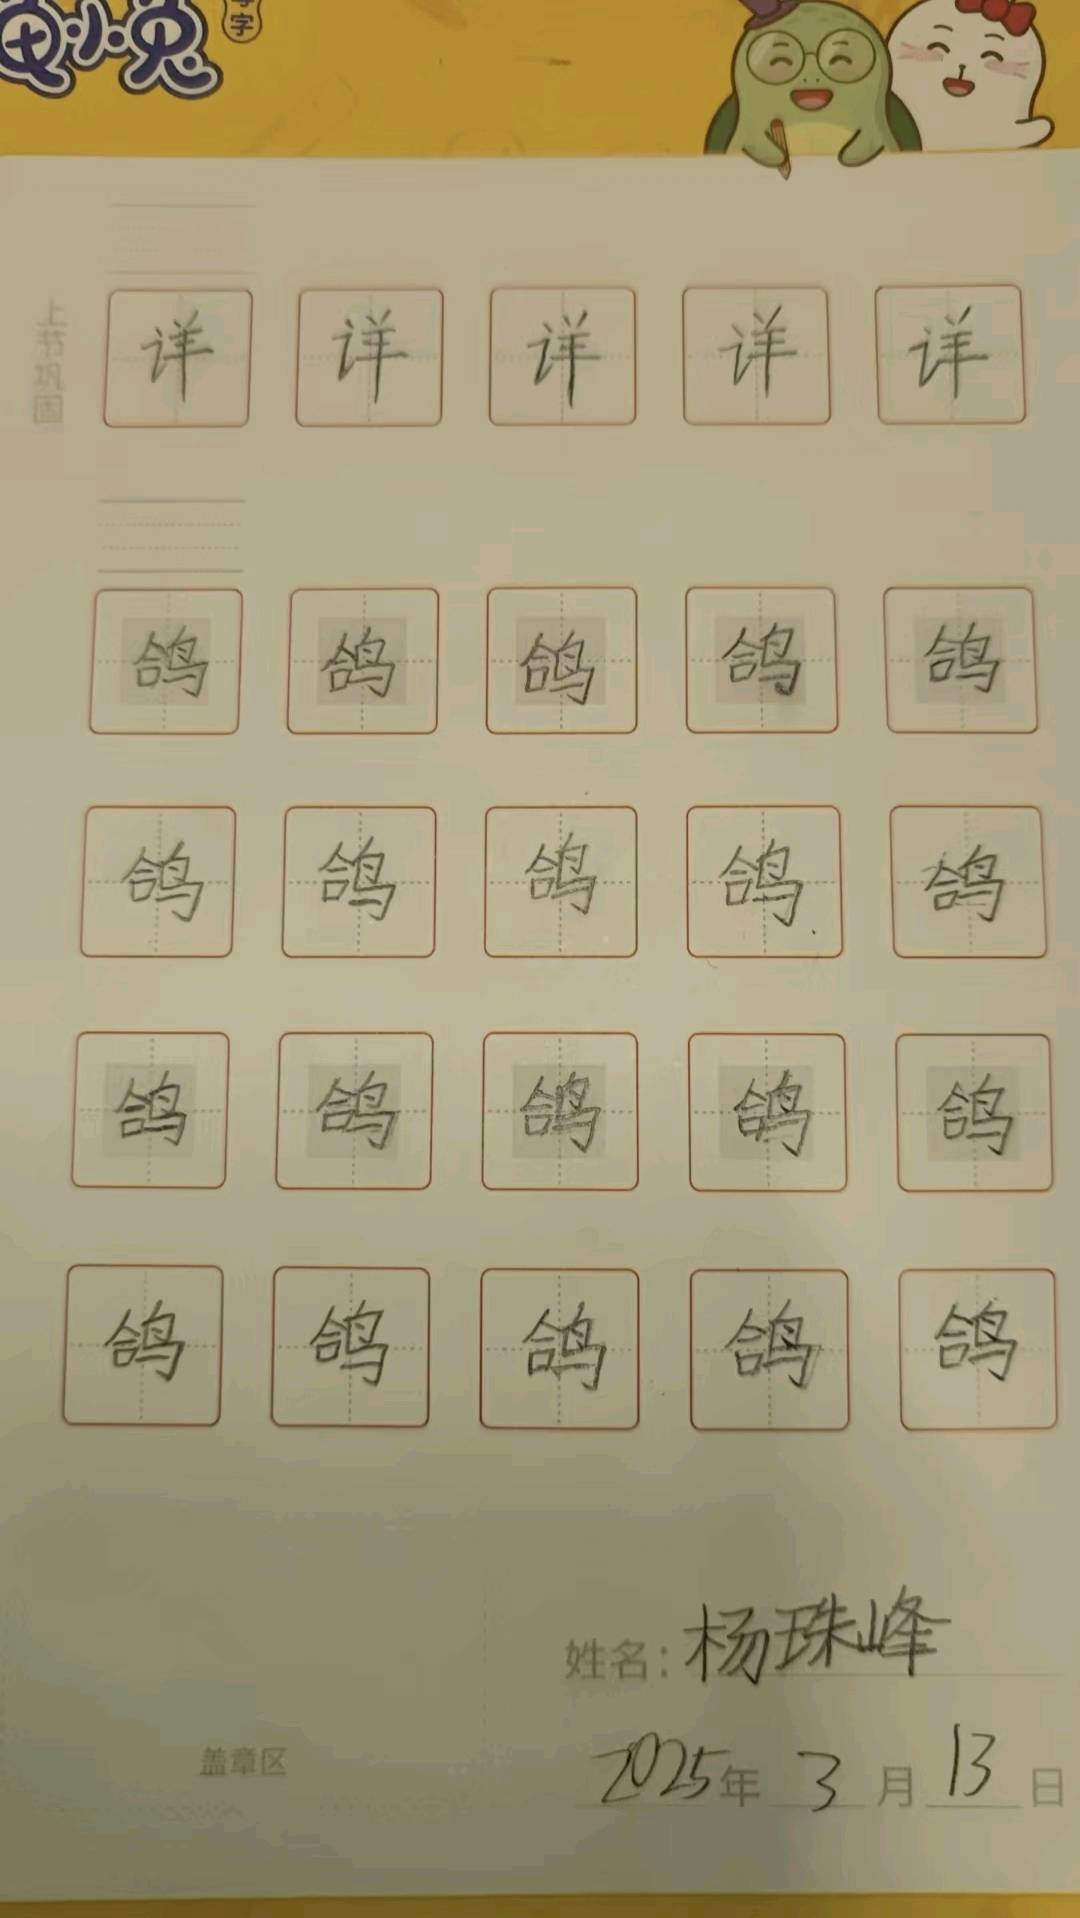 龟小兔
写字
上节巩固
详 详 详 详 详
鸽 鸽 鸽 鸽 鸽
鸽 鸽 鸽 鸽 鸽
鸽 鸽 鸽 鸽 鸽
鸽 鸽 鸽 鸽 鸽
姓名：杨珠峰
盖章区
2025年 3月 13日